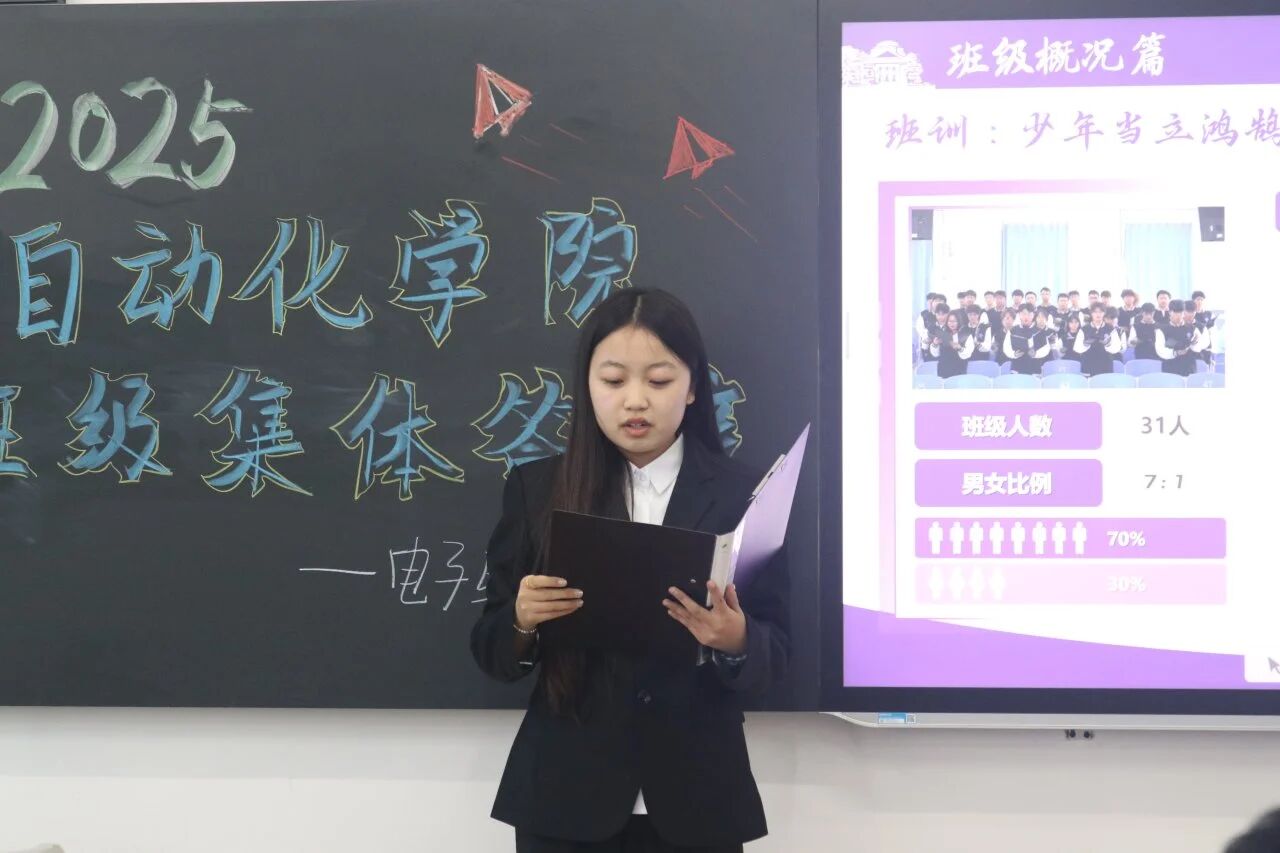 2025
自动化学院
班级集体答
—电子
班级概况篇
班训：少年当立鸿鹄
班级人数 31人
男女比例 7:1
70%
30%